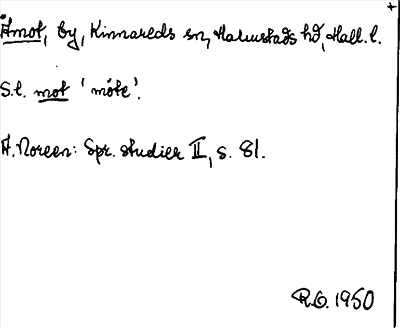 Åmot, by, Kinnareds sn, Halmstads hd, Hall. l.
S.l. mot 'möte'.
A. Noreen: Spr. studier II, s. 81.
R.G. 1950